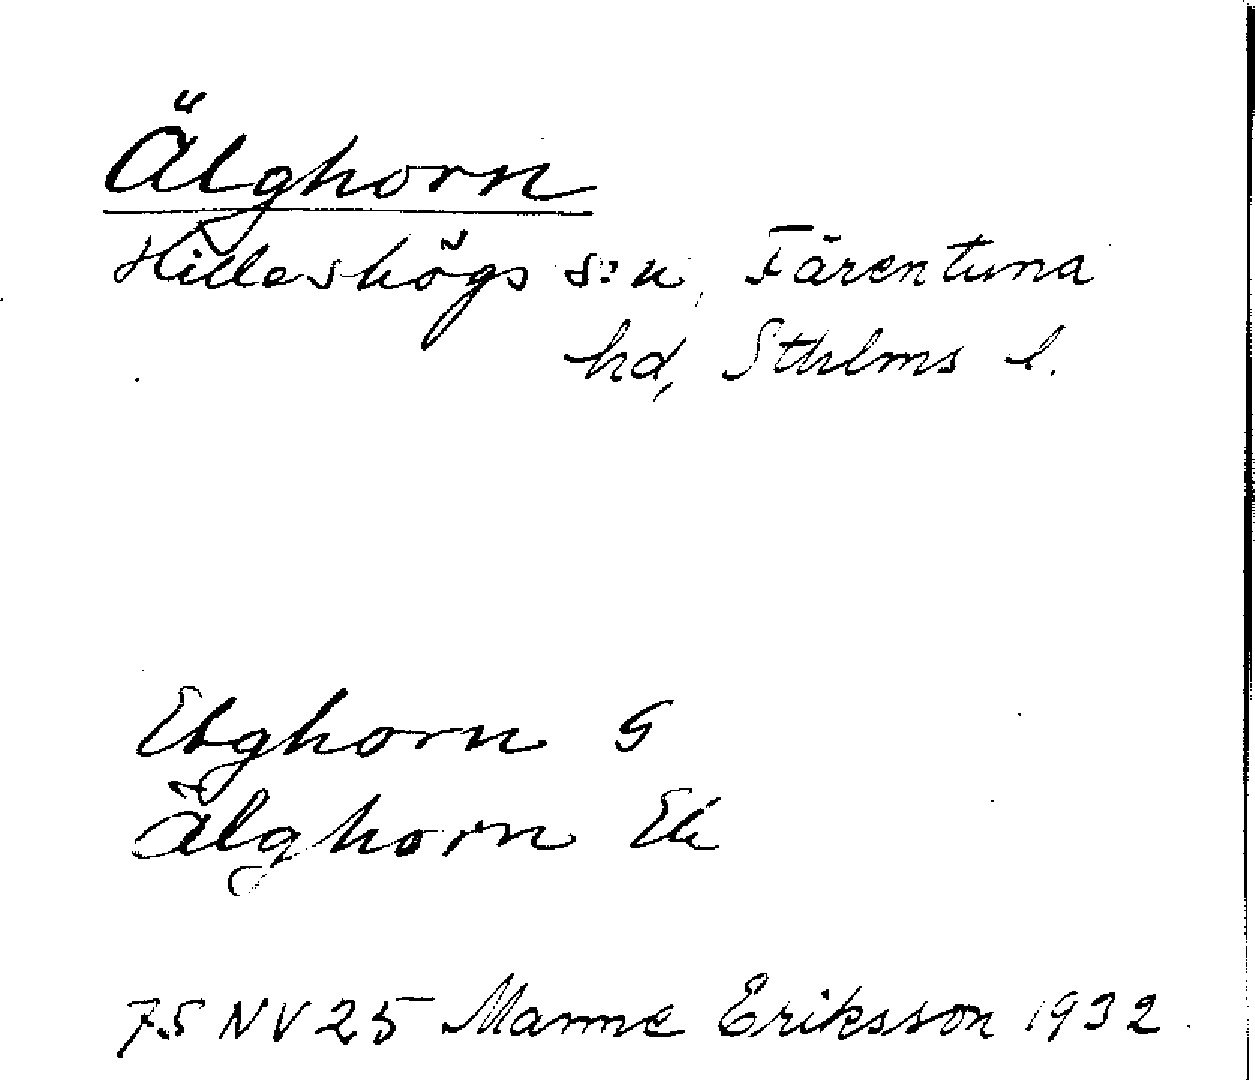 Älghorn
Hilleshögs s:n, Färentuna
hd, Sthlms l.
Elghorn G
Älghorn Ek
75 NV 25 Manne Eriksson 1932